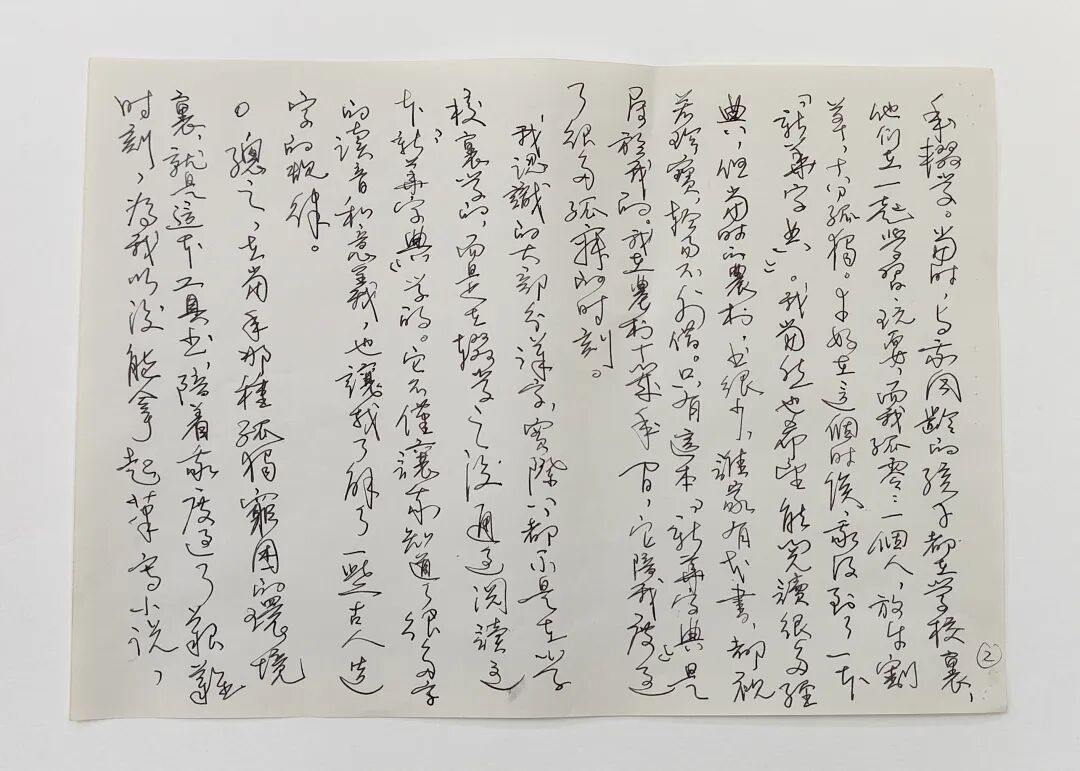 ②
年辍学。當时,与我同齡的孩子都在学校裏,
他们在一起学習玩耍,而我孤零零一個人,放牛割
草,十分孤獨。幸好在这個时候,我得到了一本
「新華字典」。我當然也希望能閱讀很多經
典,但當时的農村,书很少,誰家有本書,都视
若珍寶,輕易不外借。只有這本「新華字典」是
属於我的。我在農村十幾年间,它陪我度过
了很多孤寂的时刻。
我認識的大部分漢字,實際上都不是在小学
校裏学的,而是在辍学之後通过阅讀这
本「新華字典」学的。它不僅讓我知道了很多字
的读音和意義,也讓我了解了一些古人造
字的规律。
總之,在當年那種孤獨窮困的環境
裏,就是這本工具书,陪着我度过了艱難
时刻,為我以後能拿起筆写小说,